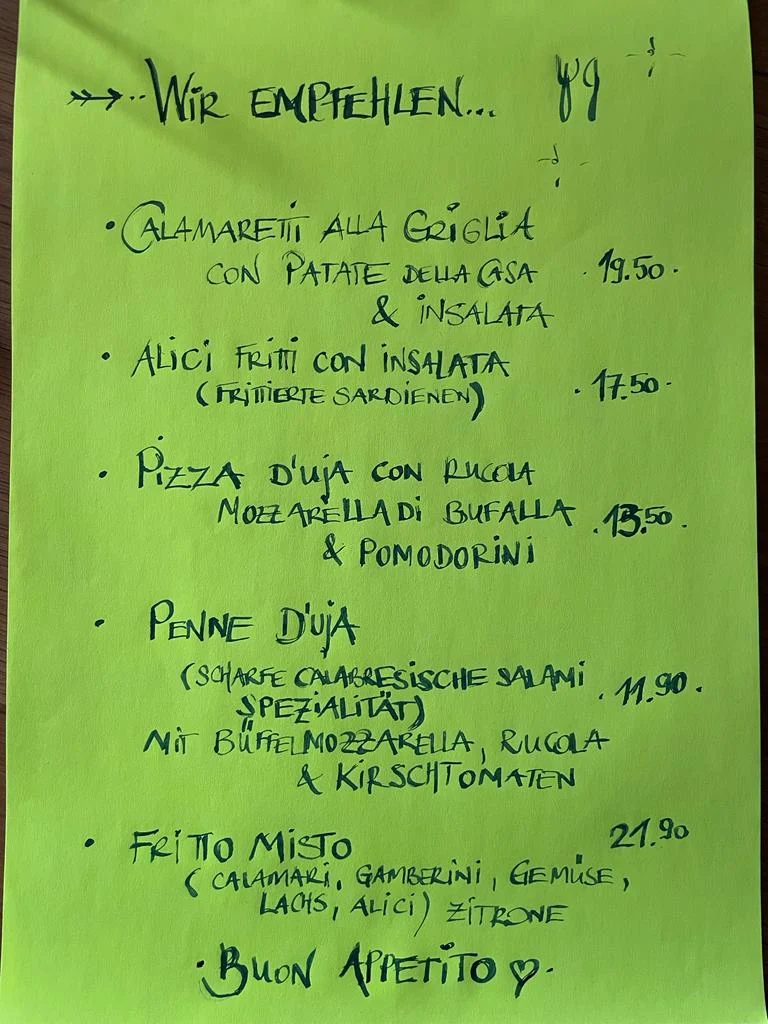 Wir EMPFEHLEN...
• CALAMARETTI ALLA GRiGLiA
CON PATATE DELLA CASA · 19.50 ·
& iNSALATA
• ALiCi FRiTTi CON iNSALATA
(FRiTTiERTE SARDiENEN) · 17.50 ·
• PiZZA D'UjA CON RUCOLA
MOZZARELLA Di BUFALLA · 13.50 ·
& POMODORiNi
• PENNE D'UjA
(SCHARFE CALABRESiSCHE SALAMi · 11.90 ·
SPEZiALiTÄT)
MiT BÜFFELMOZZARELLA, RUCOLA
& KiRSCHTOMATEN
• FRiTTO MiSTO 21.90
(CALAMARi, GAMBERiNi, GEMÜSE,
LACHS, ALiCi) ZiTRONE
· BUON APPETiTO ♡ ·